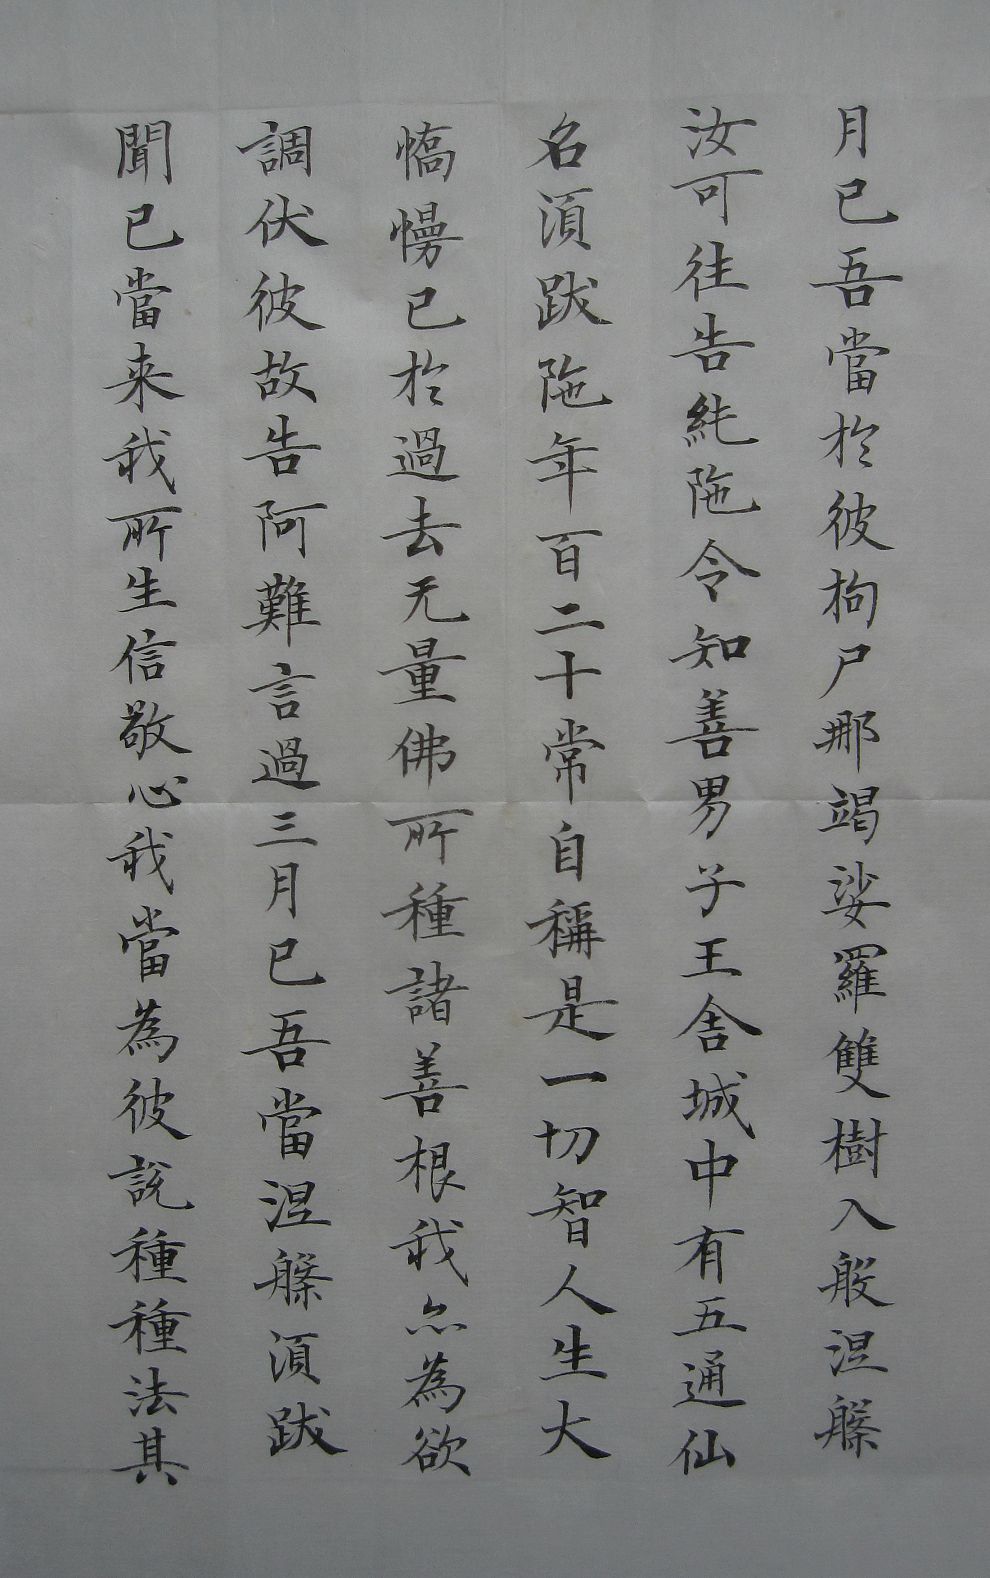 月已吾當於彼拘尸那竭娑羅雙樹入般涅槃
汝可往告純陁令知善男子王舍城中有五通仙
名湏跋陁年百二十常自稱是一切智人生大
憍慢已於過去无量佛所種諸善根我亦為欲
調伏彼故告阿難言過三月已吾當涅槃湏跋
聞已當来我所生信敬心我當為彼說種種法其